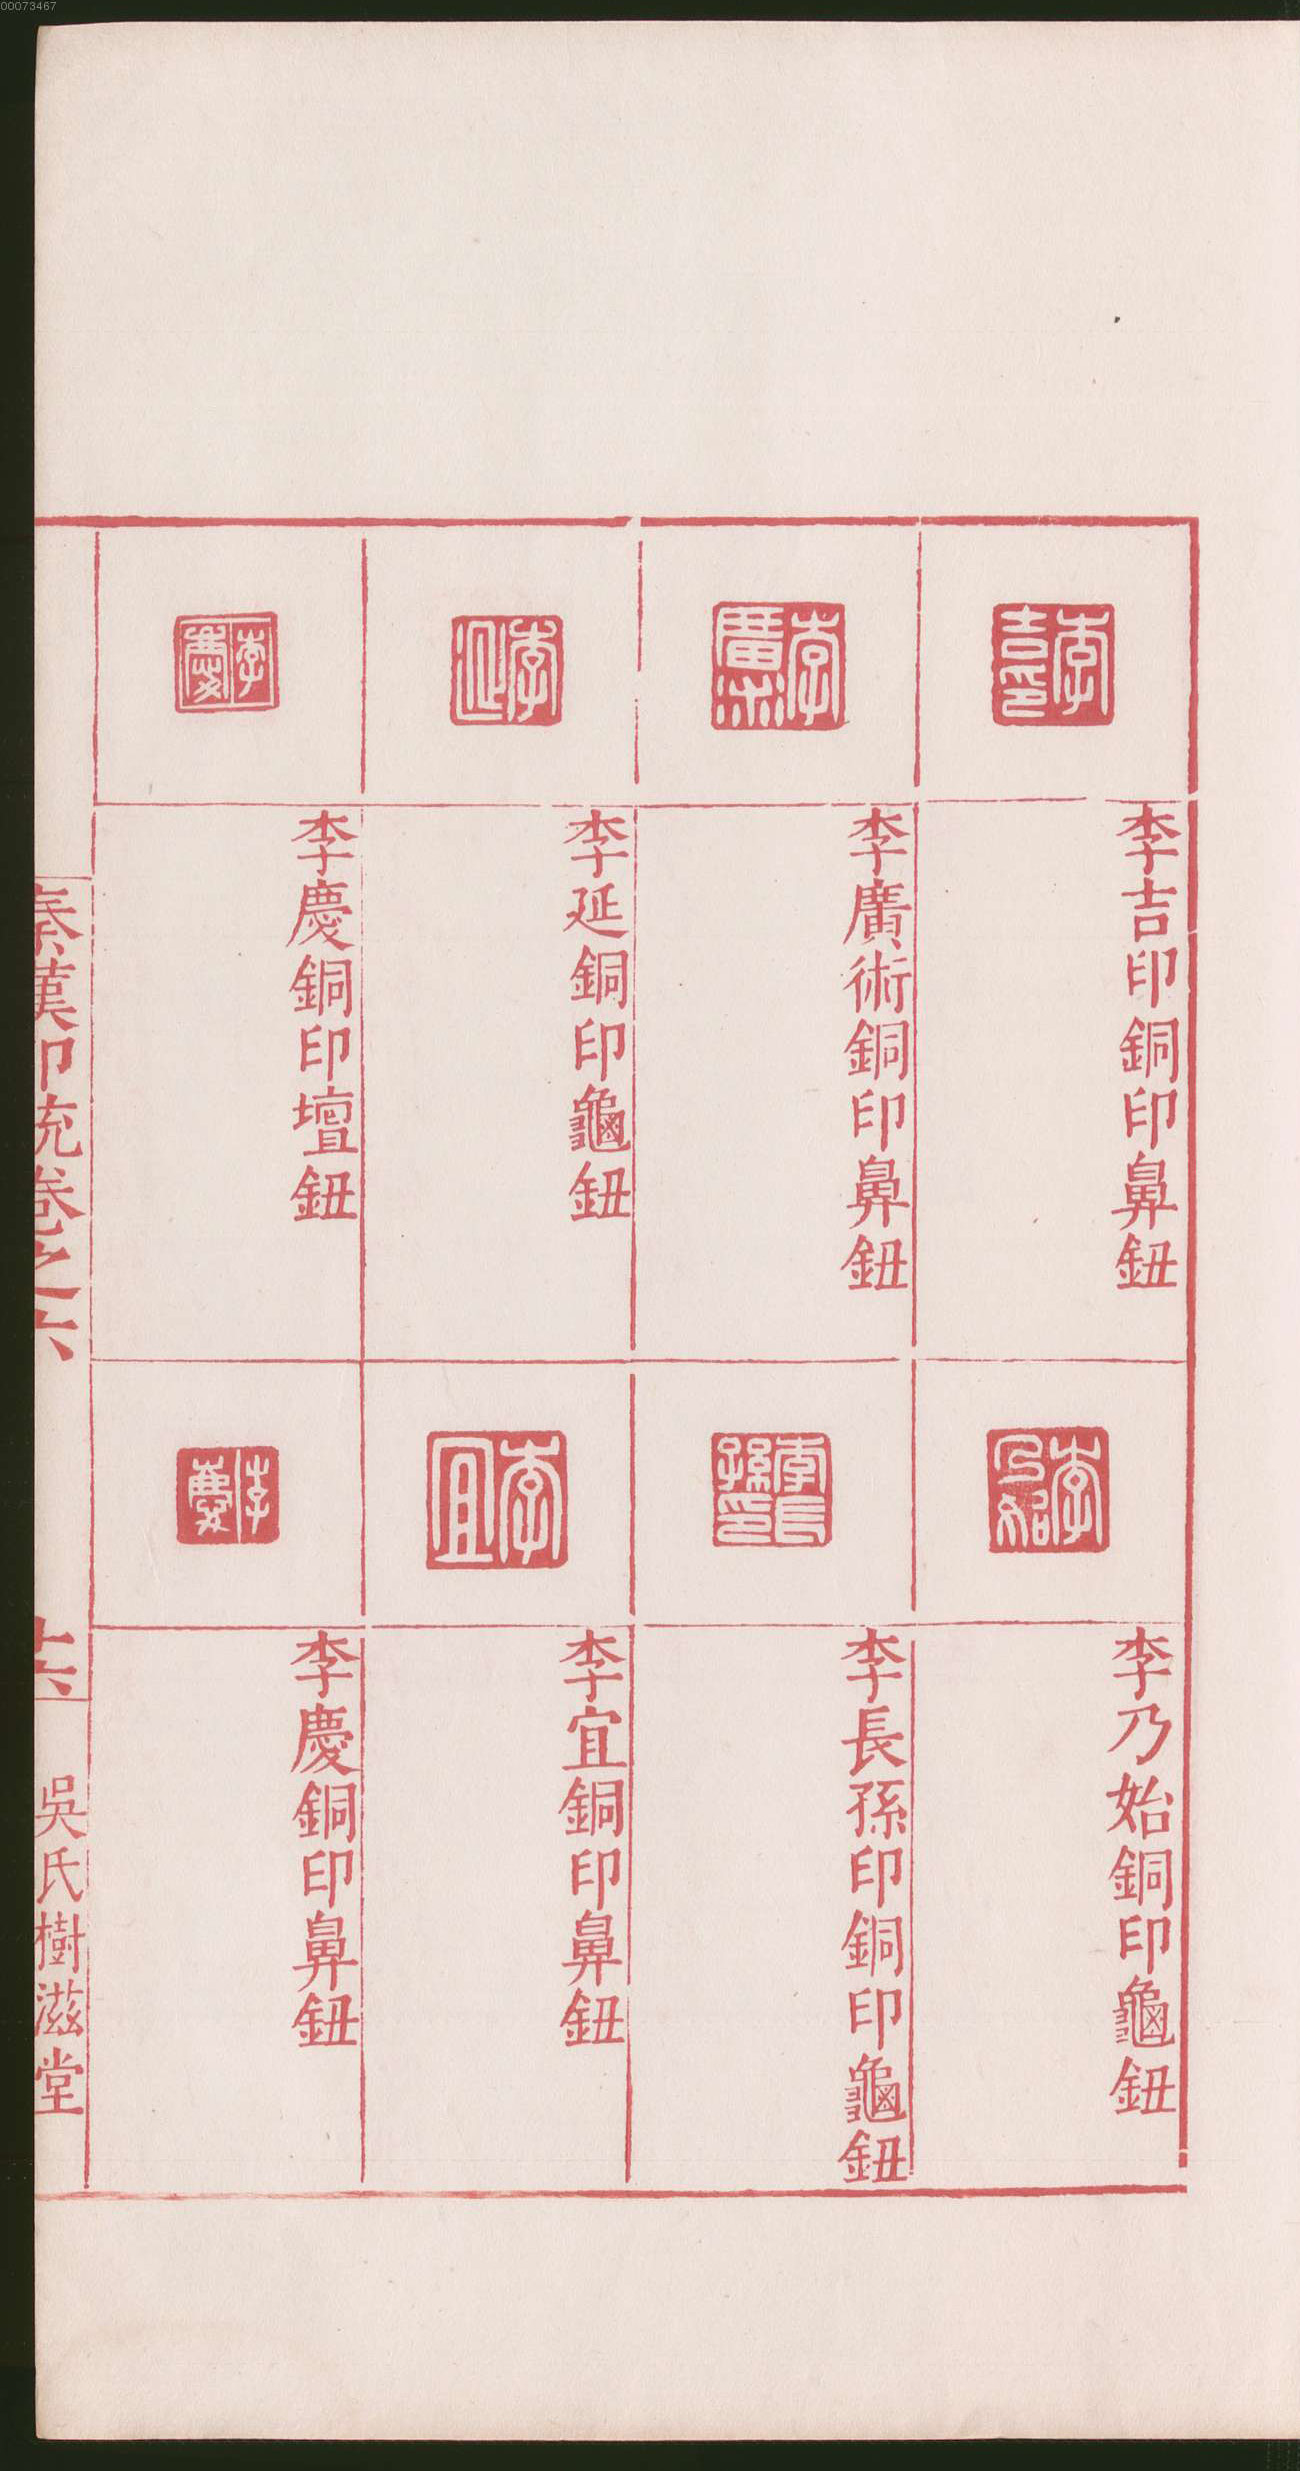 00073467
李吉印
李吉印銅印鼻鈕
李廣術
李廣術銅印鼻鈕
李延
李延銅印龜鈕
李慶
李慶銅印壇鈕
李乃始
李乃始銅印龜鈕
李長孫印
李長孫印銅印龜鈕
李宜
李宜銅印鼻鈕
李慶
李慶銅印鼻鈕
秦漢印統卷之六
十六
吳氏樹滋堂